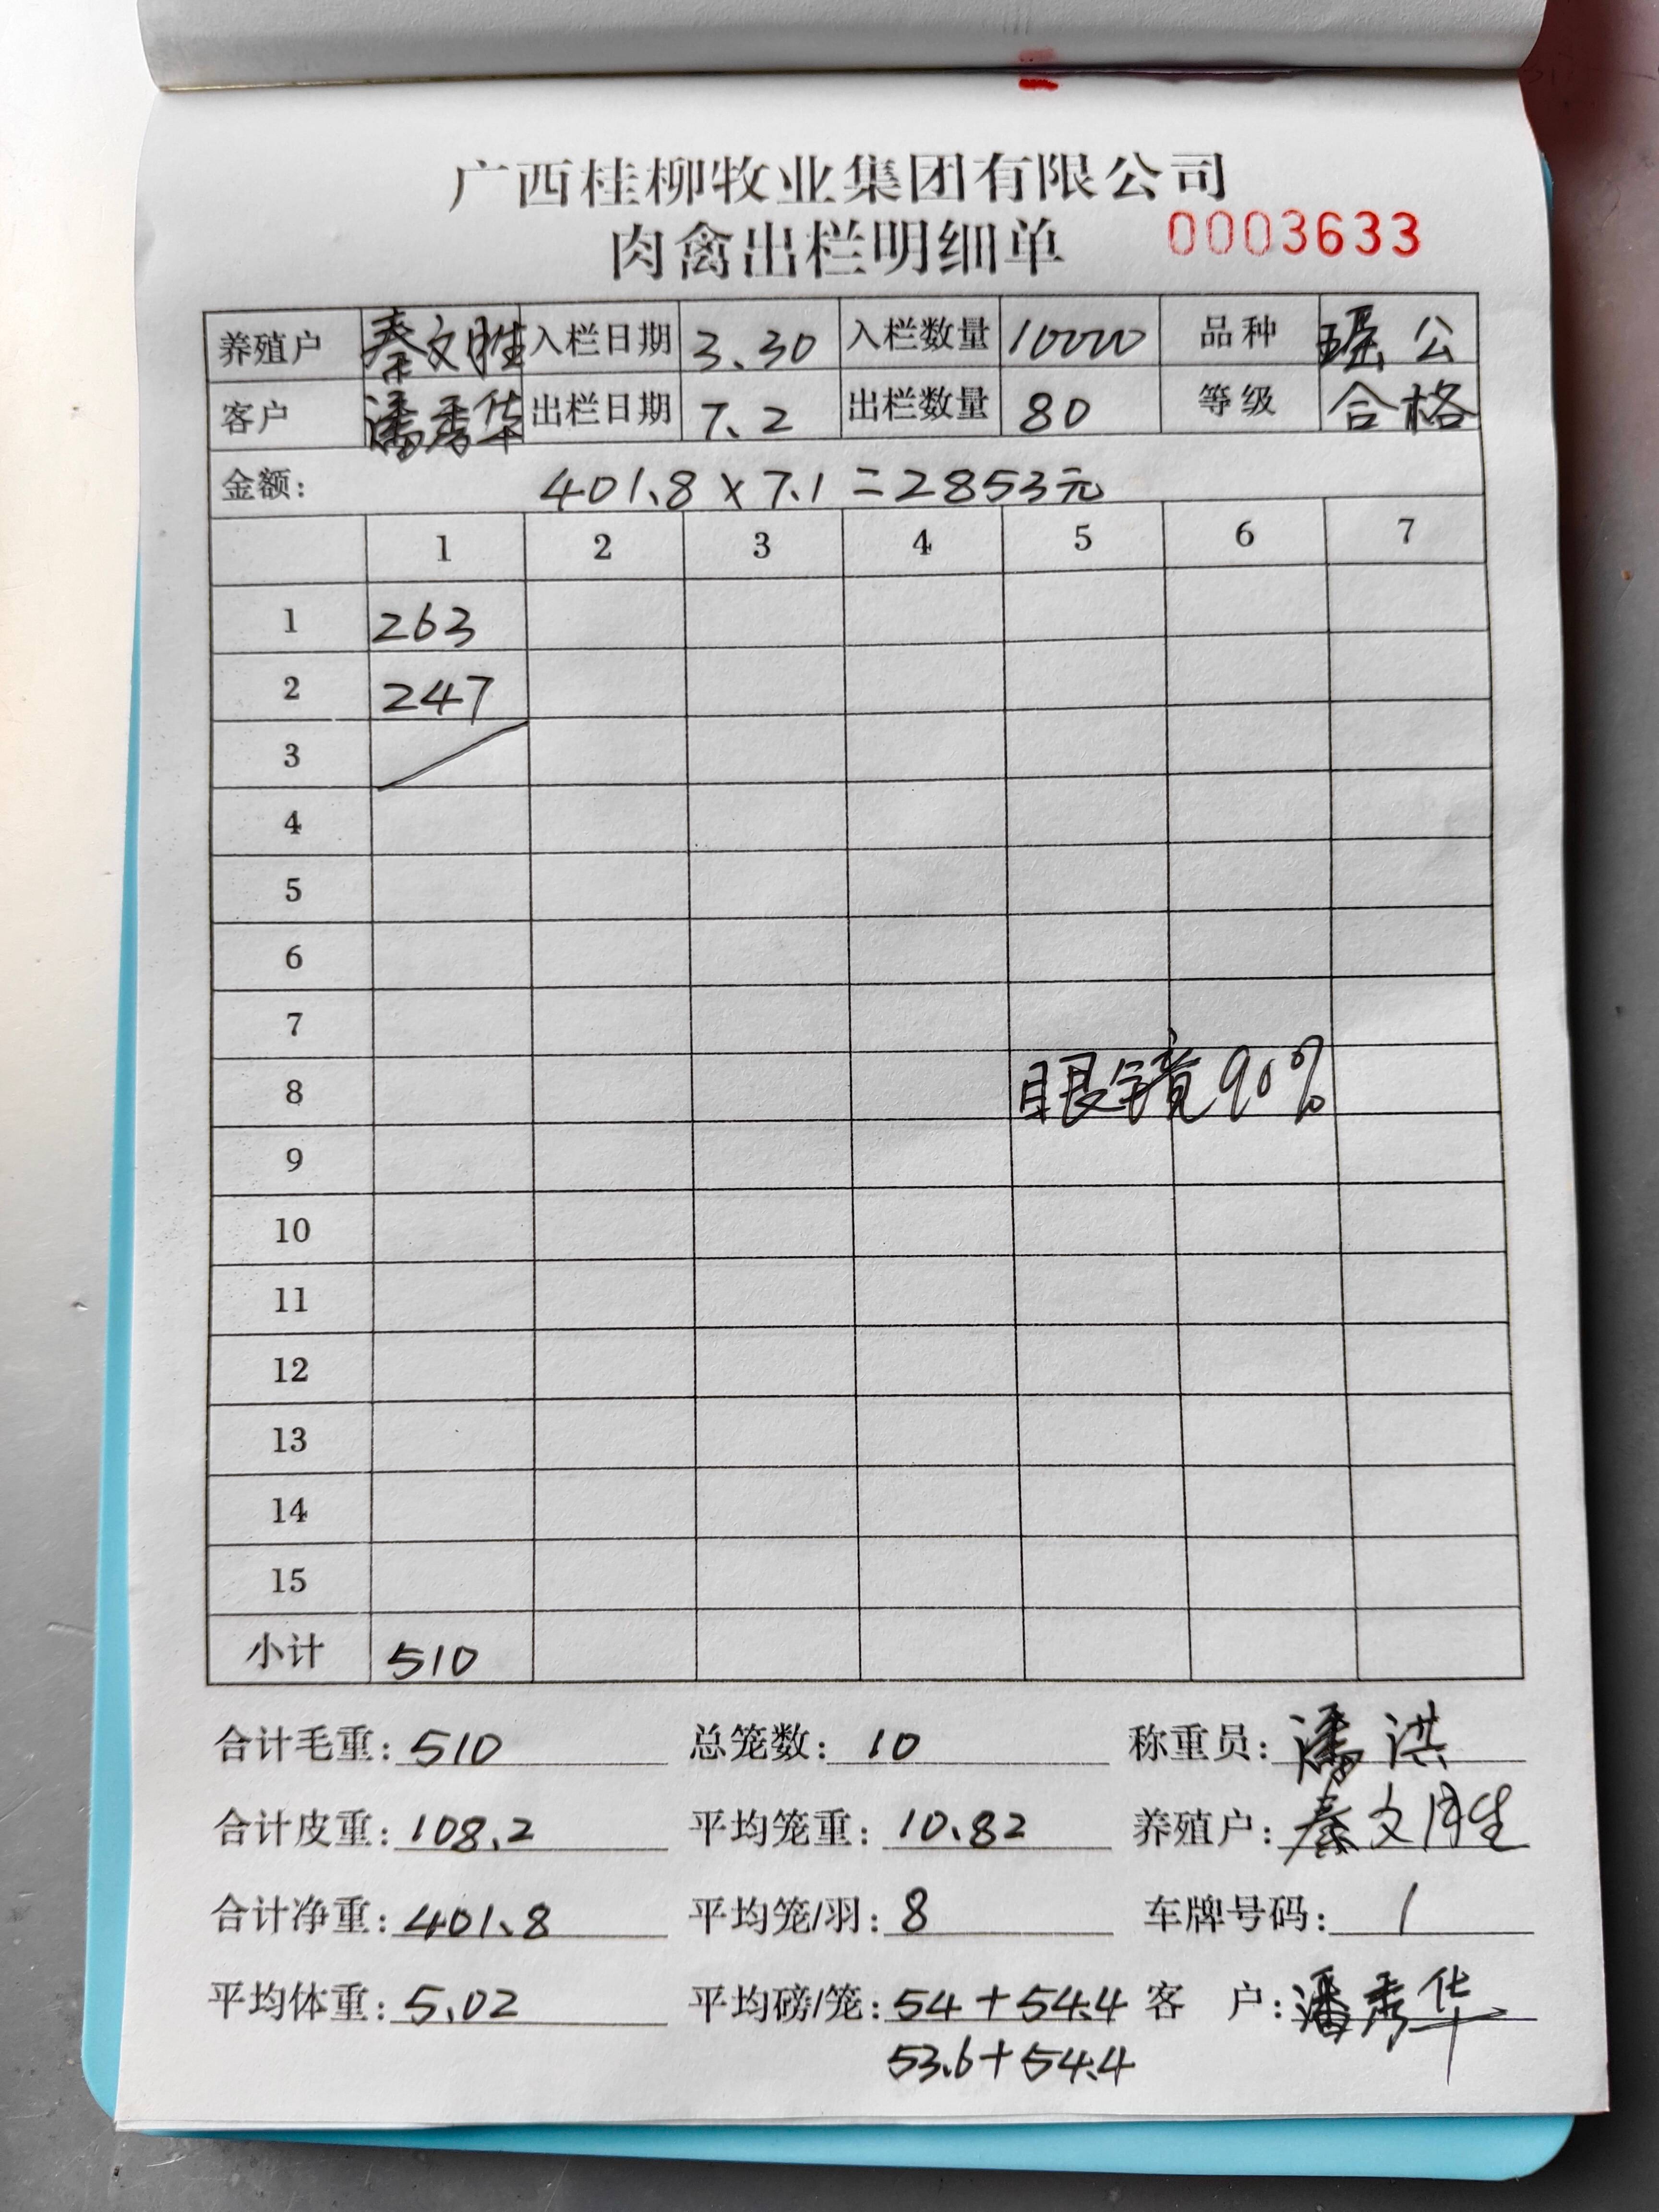 广西桂柳牧业集团有限公司
肉禽出栏明细单 0003633
养殖户 秦文胜 入栏日期 3.30 入栏数量 10000 品种 瑶公
客户 潘秀华 出栏日期 7.2 出栏数量 80 等级 合格
金额: 401.8×7.1=2853元
1 2 3 4 5 6 7
1 263
2 247
3
4
5
6
7
8 眼镜90%
9
10
11
12
13
14
15
小计 510
合计毛重: 510 总笼数: 10 称重员: 潘洪
合计皮重: 108.2 平均笼重: 10.82 养殖户: 秦文胜
合计净重: 401.8 平均笼/羽: 8 车牌号码: 1
平均体重: 5.02 平均磅/笼: 54+54.4 客 户: 潘秀华
53.6+54.4